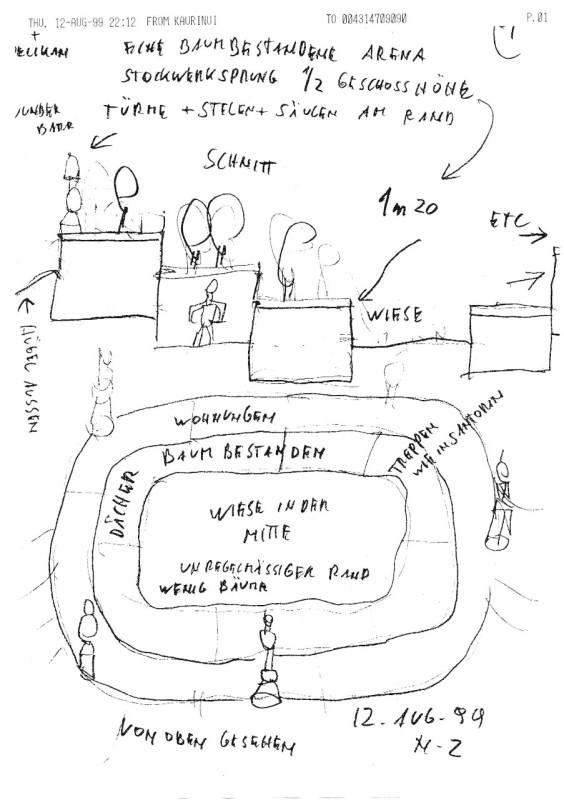 THU, 12-AUG-99 22:12 FROM KAURINUI TO 004314709090 P.01
+
EINE BAUMBESTANDENE ARENA
STOCKWERKSPRUNG 1/2 GESCHOSSHÖHE
TÜRME + STELEN + SÄULEN AM RAND
SCHNITT
1m20
ETC
WIESE
HÜGEL AUSSEN
WOHNUNGEN
BAUM BESTANDEN
TREPPEN
WIE IN SANTORIN
DÄCHER
WIESE IN DER
MITTE
UNREGELMÄSSIGER RAND
WENIG BÄUME
VON OBEN GESEHEN
12. AUG-99
N-Z